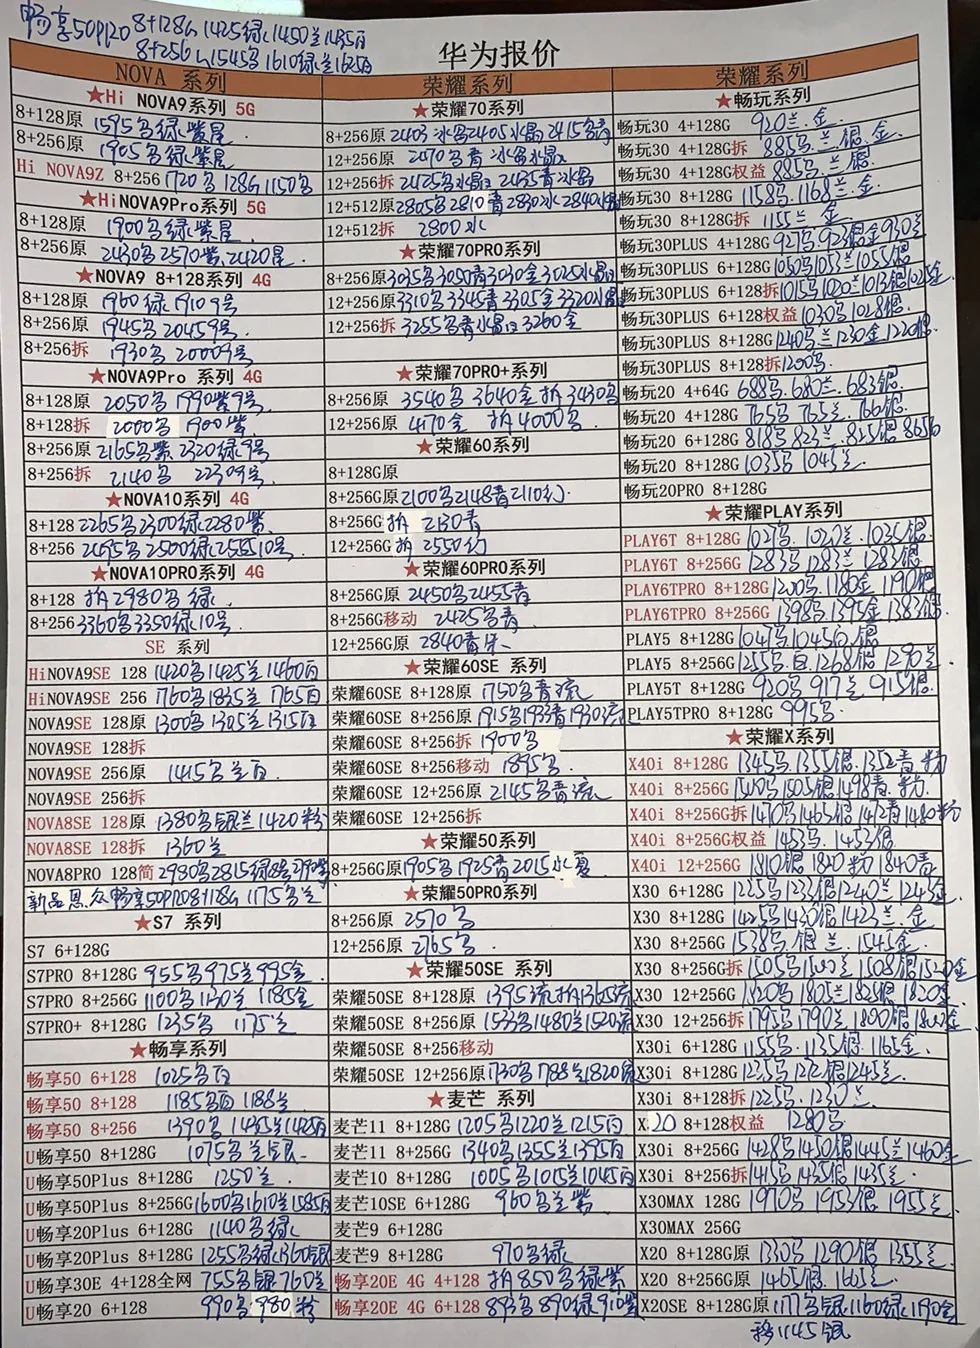 畅享50P120 8+128G 1425绿 1450兰 1435白
8+256G 1545名 1610绿兰 1625白
华为报价
NOVA 系列
★Hi NOVA9系列 5G
8+128原 1595名绿紫星
8+256原 1905名绿紫星
Hi NOVA9Z 8+256 1720名 128G 1150名
★HiNOVA9Pro系列 5G
8+128原 1900名绿紫星
8+256原 2430名 2570紫 2420星
★NOVA9 8+128系列 4G
8+128原 1960绿 1910 9号
8+256原 1945名 2045 9号
8+256拆 1930名 2000 9号
★NOVA9Pro 系列 4G
8+128原 2050名 1990紫9号
8+128拆 2000名 1900紫
8+256原 2165名紫 2320绿9号
8+256拆 2140名 2230 9号
★NOVA10系列 4G
8+128 2265名 2300绿 2280紫
8+256 2495名 2500绿 2555 10号
★NOVA10PRO系列 4G
8+128 拆2980名 绿
8+256 3360名 3350绿 10号
SE 系列
HiNOVA9SE 128 1420名 1425兰 1460白
HiNOVA9SE 256 1760名 1835兰 1765白
NOVA9SE 128原 1300名 1305兰 1315白
NOVA9SE 128拆
NOVA9SE 256原 1415名兰白
NOVA9SE 256拆
NOVA8SE 128原 1380名银兰 1420粉
NOVA8SE 128拆 1360兰
NOVA8PRO 128简 2980名 2815绿
新品 畅享50P120 8+128G 1175名兰
★S7 系列
S7 6+128G
S7PRO 8+128G 955名 975兰 995金
S7PRO 8+256G 1100名 1130兰 1185金
S7PRO+ 8+128G 1235名 1175兰
★畅享系列
畅享50 6+128 1025名白
畅享50 8+128 1185名白 1188兰
畅享50 8+256 1390名 1435兰 1425白
U畅享50 8+128G 1075名兰银
U畅享50Plus 8+128G 1250兰
U畅享50Plus 8+256G 1600名 1610兰 1585白
U畅享20Plus 6+128G 1140名绿
U畅享20Plus 8+128G 1255名绿 1360银
U畅享30E 4+128全网 755名银 760兰
U畅享20 6+128 990名 980粉
荣耀系列
★荣耀70系列
8+256原 2403冰名 2405水晶 2415名青
12+256原 2670名青 冰名水晶
12+256拆 2425名水晶 2435青冰晶
12+512原 2805名 2810青 2830冰 2840水晶
12+512拆 2800冰
★荣耀70PRO系列
8+256原 3035名 3050青 3030金 3025水晶
12+256原 3310名 3345青 3305金 3320水晶
12+256拆 3255名青水晶 3260金
★荣耀70PRO+系列
8+256原 3540名 3640金 拆3430名
12+256原 4170金 拆4000名
★荣耀60系列
8+128G原
8+256G原 2100名 2148青 2110幻
8+256G 拆 2130青
12+256G 拆 2550幻
★荣耀60PRO系列
8+256G原 2450名 2455青
8+256G移动 2425名青
12+256G原 2840青朱
★荣耀60SE 系列
荣耀60SE 8+128原 1750名青流
荣耀60SE 8+256原 1915名 1933青 1930流
荣耀60SE 8+256拆 1900名
荣耀60SE 8+256移动 1895名
荣耀60SE 12+256原 2145名青流
荣耀60SE 12+256拆
★荣耀50系列
8+256G原 1905名 1925青 2015水夏
★荣耀50PRO系列
8+256原 2570名
12+256原 2765名
★荣耀50SE 系列
荣耀50SE 8+128原 1395流 拆1365流
荣耀50SE 8+256原 1533名 1480兰 1520流
荣耀50SE 8+256移动
荣耀50SE 12+256原 1730名 1788兰 1820流
★麦芒 系列
麦芒11 8+128G 1205名 1220兰 1215白
麦芒11 8+256G 1340名 1355兰 1395白
麦芒10 8+128G 1005名 1015兰 1045白
麦芒10SE 6+128G 960名兰紫
麦芒9 6+128G
麦芒9 8+128G 970名绿
畅享20E 4G 4+128 拆850名绿紫
畅享20E 4G 6+128 893名 890绿 910紫
荣耀系列
★畅玩系列
畅玩30 4+128G 920兰.金
畅玩30 4+128G拆 885名.兰银.金
畅玩30 4+128G权益 885名.兰银
畅玩30 8+128G 1158名 1168兰.金
畅玩30 8+128G拆 1155兰 金
畅玩30PLUS 4+128G 927名 923银金 930兰
畅玩30PLUS 6+128G 1050名 1053兰 1055银
畅玩30PLUS 6+128拆 1015名 1020兰 1013银 1025金
畅玩30PLUS 6+128权益 1030名 1028银
畅玩30PLUS 8+128G 1240名.兰 1230金 1220银
畅玩30PLUS 8+128拆 1200名
畅玩20 4+64G 688名.680兰.683银
畅玩20 4+128G 765名 765兰.766银
畅玩20 6+128G 818名 823兰.825银
畅玩20 8+128G 1035名 1045兰
畅玩20PRO 8+128G
★荣耀PLAY系列
PLAY6T 8+128G 1027名.1020兰.1035银
PLAY6T 8+256G 1283名 1283兰 1283银
PLAY6TPRO 8+128G 1200名.1180金 1190银
PLAY6TPRO 8+256G 1398名 1395金 1383银
PLAY5 8+128G 1047名 1045白.银
PLAY5 8+256G 1255名.白 1268银 1290兰
PLAY5T 8+128G 920名 917兰 915银
PLAY5TPRO 8+128G 995名
★荣耀X系列
X40i 8+128G 1345名 1355银 1352青 粉
X40i 8+256G 1500名 1505银 1498青.粉
X40i 8+256G拆 1470名 1465银 1472青 1480粉
X40i 8+256G权益 1453名.1453银
X40i 12+256G 1810银 1820粉 1840青
X30 6+128G 1225名 1233银 1240兰 1243金
X30 8+128G 1425名 1430银 1423兰.金
X30 8+256G 1538名.银 兰.1545金
X30 8+256G拆 1505名 1500兰 1508银 1520金
X30 12+256G 1820名 1805兰 1825银 1820金
X30 12+256拆 1795名 1790兰 1800银 1800金
X30i 6+128G 1155名.1135银.1165金
X30i 8+128G 1235名 1212银 1245兰
X30i 8+128拆 1225名.1230兰
X 20 8+128权益 1280名
X30i 8+256G 1428名 1450银 1445兰 1460金
X30i 8+256拆 1415名 1425银 1435兰
X30MAX 128G 1970名 1953银 1955兰
X30MAX 256G
X20 8+128G原 1330名 1290银 1355兰
X20 8+256G原 1465银.1665兰
X20SE 8+128G原 1177名银 1160绿 1190金
移1145银